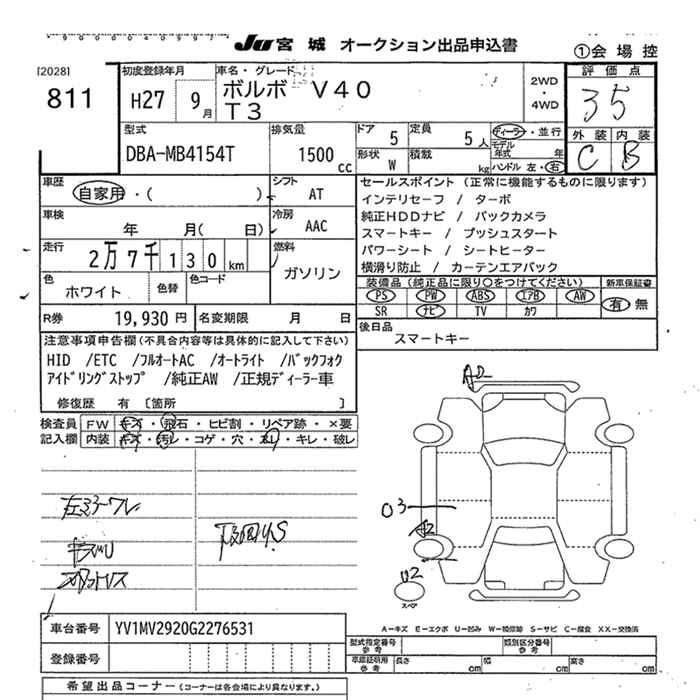 Ju 宮城 オークション出品申込書
①会場控
[2028]
811
初度登録年月
H27 9月
車名・グレード
ボルボ V40
T3
2WD
・
4WD
評価点
35
外装 内装
C B
型式
DBA-MB4154T
排気量
1500 cc
ドア 5
定員 5人
形状 W
積載 kg
ディーラー・並行
モデル年式 年
ハンドル 左・右
車歴
自家用・( )
シフト AT
車検
年 月( 日)
冷房 AAC
走行
2万7千130km
燃料
ガソリン
色
ホワイト
色替
色コード
R券 19,930円
名変期限 月 日
セールスポイント (正常に機能するものに限ります)
インテリセーフ / ターボ
純正HDDナビ / バックカメラ
スマートキー / プッシュスタート
パワーシート / シートヒーター
横滑り防止 / カーテンエアバック
装備品(純正品に限り○をつけてください)
新車保証書
PS PW ABS エアB AW
SR ナビ TV カワ
有 無
後日品
スマートキー
注意事項申告欄(不具合内容等は具体的に記入して下さい)
HID /ETC /フルオートAC /オートライト /バックフォグ
アイドリングストップ /純正AW /正規ディーラー車
修復歴 有 [箇所 ]
検査員記入欄
FW キズ・飛石・ヒビ割・リペア跡・×要
内装 キズ・汚レ・コゲ・穴・スリ・キレ・破レ
A2
03
A2
02
スペア
A−キズ E−エクボ U−凹み W−補修跡 S−サビ C−腐食 XX−交換済
車台番号 YV1MV2920G2276531
登録番号
型式指定番号 参考
類別区分番号 参考
車庫証明用 参考
長さ cm
幅 cm
高さ cm
希望出品コーナー(コーナーは各会場により異なります。)